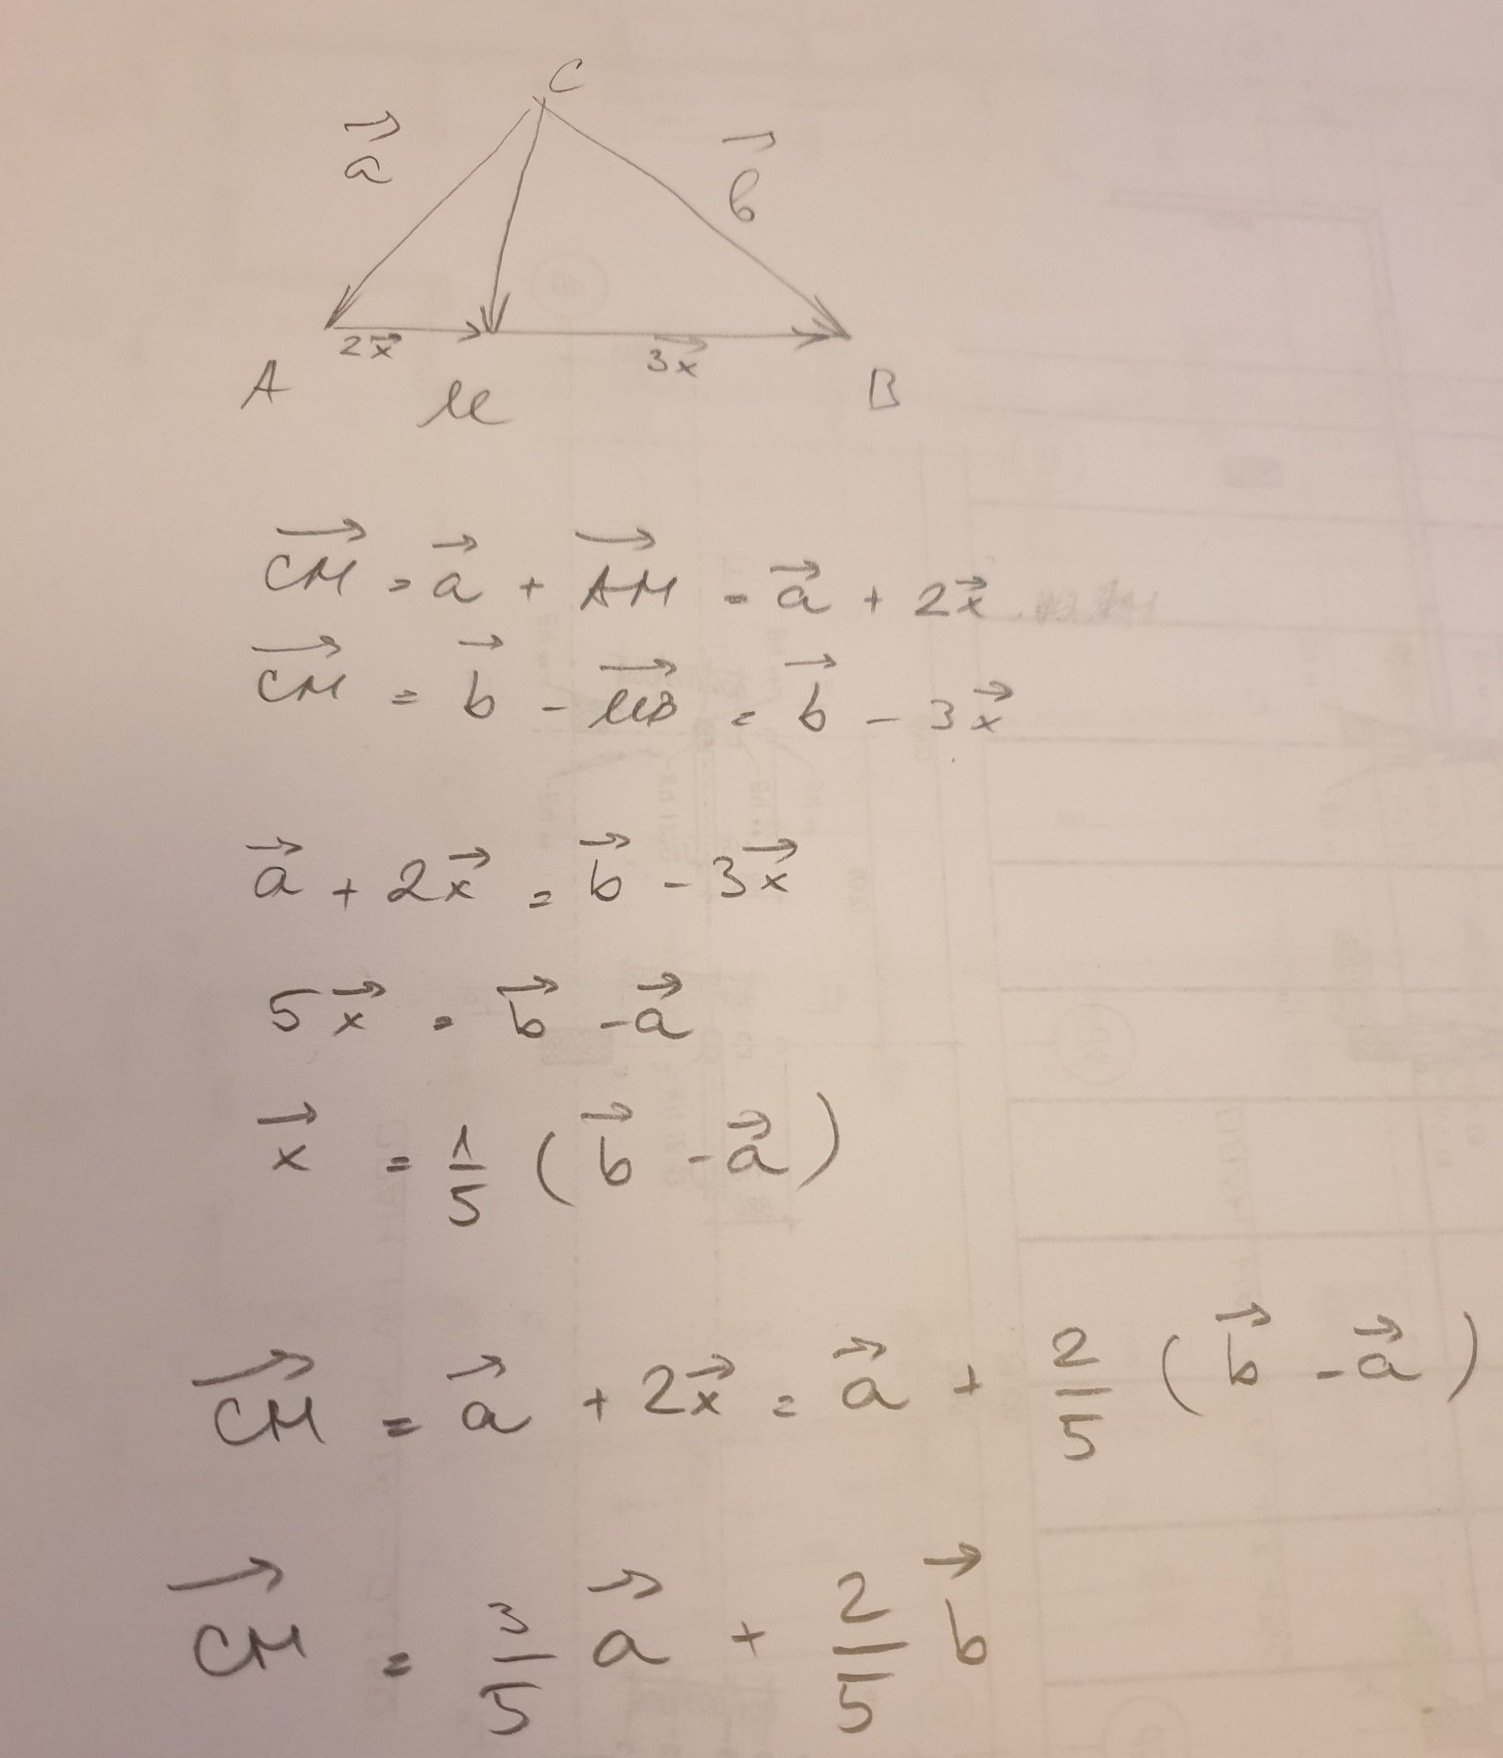 C
a⃗
b⃗
2x⃗
3x⃗
A
M
B
CM⃗ = a⃗ + AM⃗ = a⃗ + 2x⃗
CM⃗ = b⃗ - MB⃗ = b⃗ - 3x⃗
a⃗ + 2x⃗ = b⃗ - 3x⃗
5x⃗ = b⃗ - a⃗
x⃗ = 1/5 (b⃗ - a⃗)
CM⃗ = a⃗ + 2x⃗ = a⃗ + 2/5 (b⃗ - a⃗)
CM⃗ = 3/5 a⃗ + 2/5 b⃗